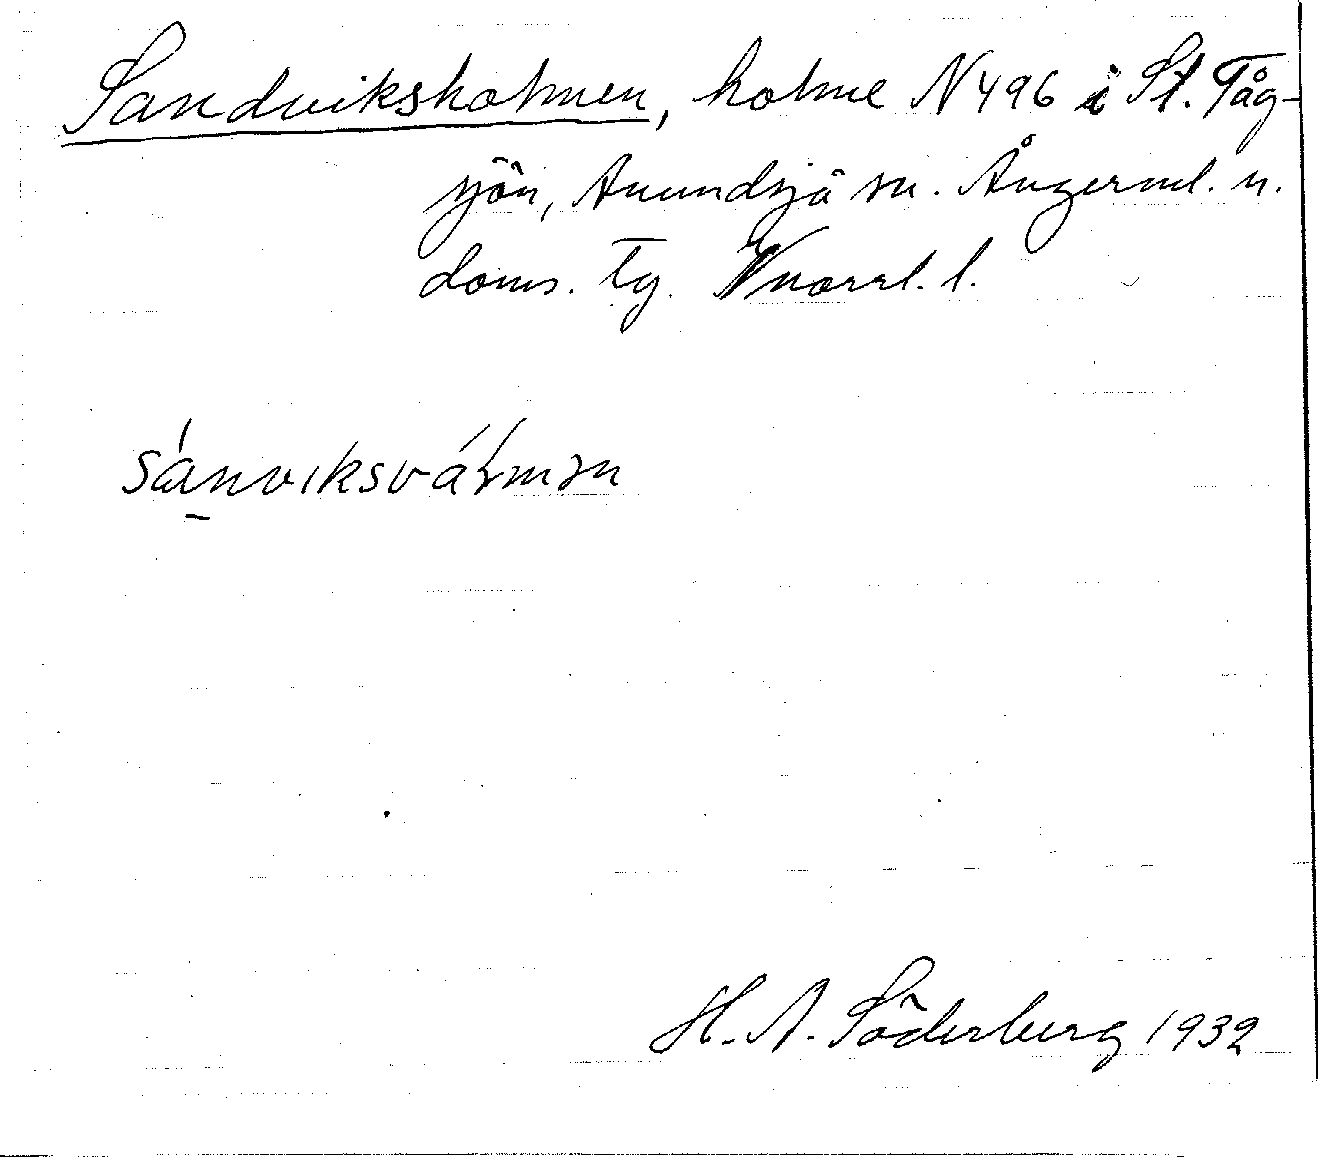 Sandviksholmen, holme N 496 i St. Tåg-
sjön, Anundsjö sn. Ångerml. n.
doms. tg. Vnorrl. l.
sánviksvármən
H. A. Söderberg 1932